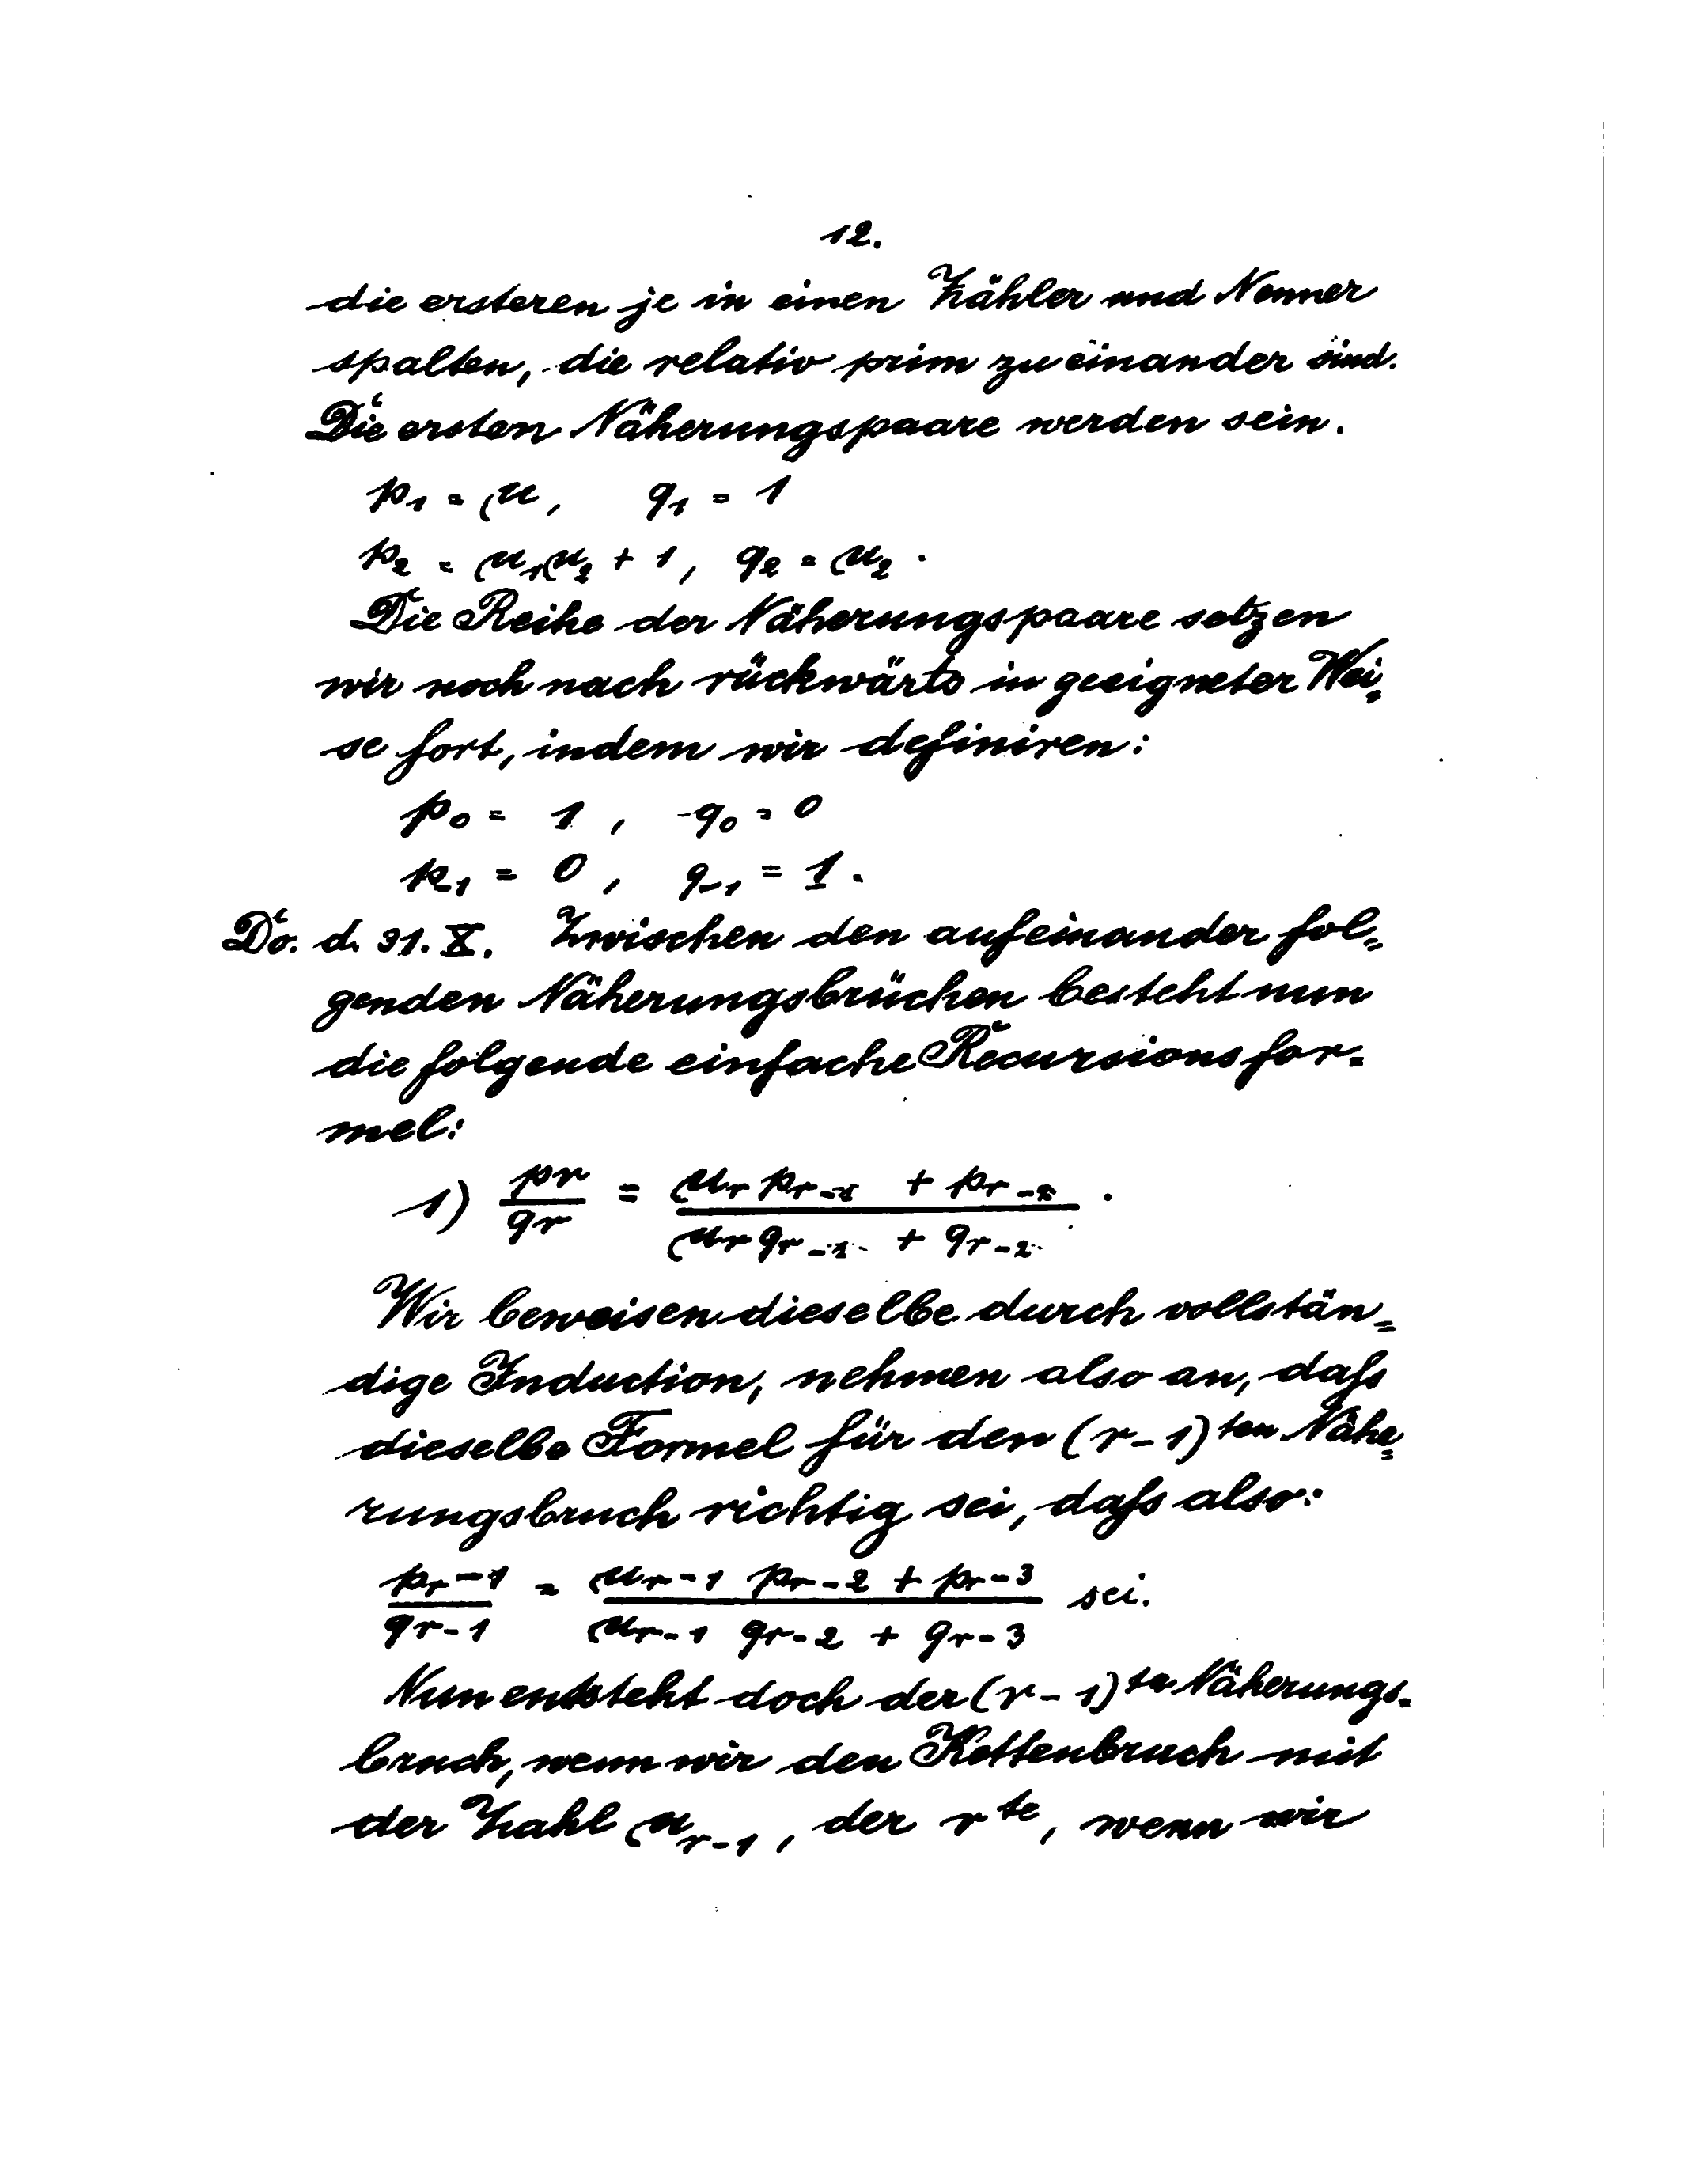 12.
die ersteren je in einen Zähler und Nenner
spalten, die relativ prim zu einander sind.
Die ersten Näherungspaare werden sein.
p₁ = μ, q₁ = 1
p₂ = μ₁μ₂ + 1, q₂ = μ₂.
Die Reihe der Näherungspaare setzen
wir noch nach rückwärts in geeigneter Wei=
se fort, indem wir definiren:
p₀ = 1, q₀ = 0
p₋₁ = 0, q₋₁ = 1.
Do. d. 31. X. Zwischen den aufeinander fol=
genden Näherungsbrüchen besteht nun
die folgende einfache Recursionsfor=
mel:
1) pᵣ/qᵣ = (μᵣ pᵣ₋₁ + pᵣ₋₂)/(μᵣ qᵣ₋₁ + qᵣ₋₂).
Wir beweisen dieselbe durch vollstän=
dige Induction, nehmen also an, daſs
dieselbe Formel für den (r-1)ten Nähe=
rungsbruch richtig sei, daſs also:
pᵣ₋₁/qᵣ₋₁ = (μᵣ₋₁ pᵣ₋₂ + pᵣ₋₃)/(μᵣ₋₁ qᵣ₋₂ + qᵣ₋₃) sei.
Nun entsteht doch der (r-1)te Näherungs=
bruch, wenn wir den Kettenbruch mit
der Zahl μᵣ₋₁, der rte, wenn wir